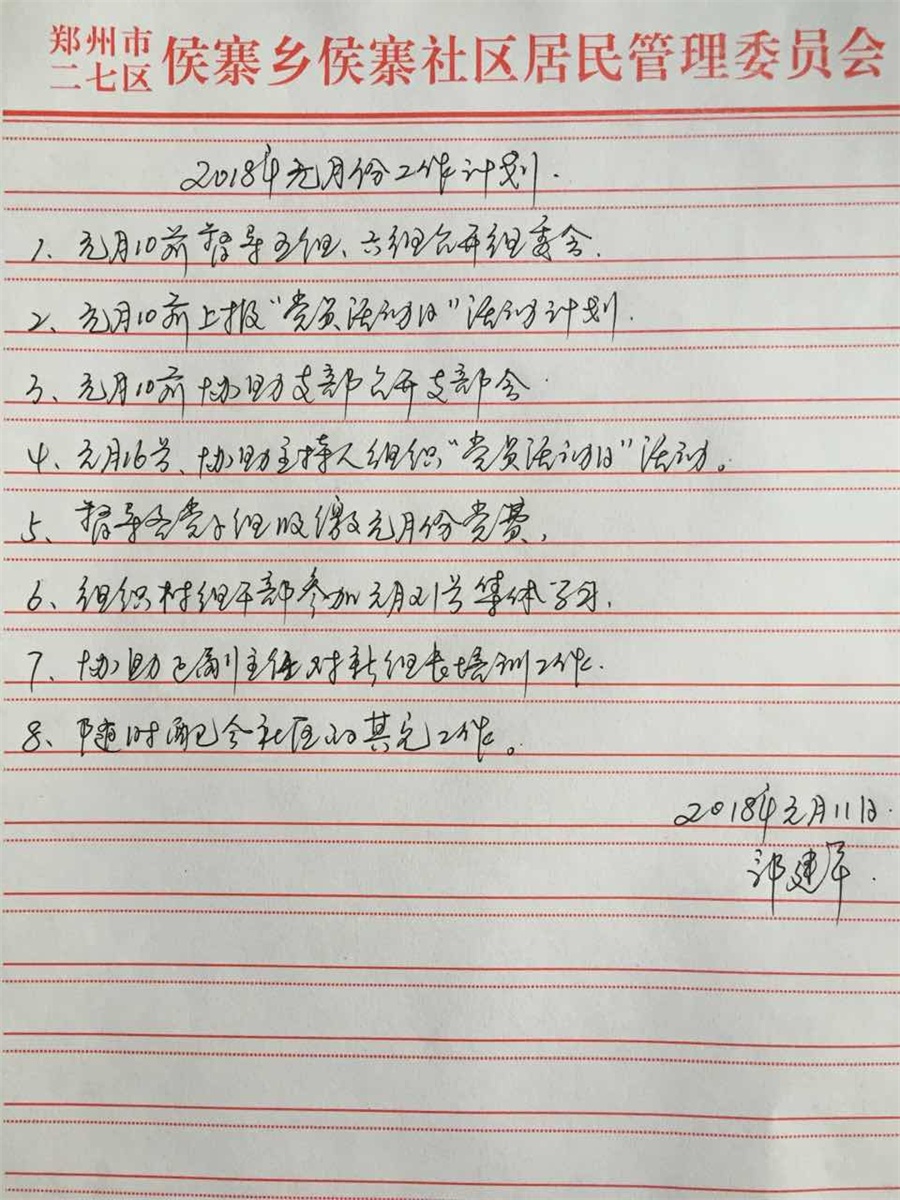 郑州市
二七区
侯寨乡侯寨社区居民管理委员会
2018年元月份工作计划.
1、元月10前督导五组、六组召开组委会.
2、元月10前上报“党员活动日”活动计划.
3、元月10前协助支部召开支部会.
4、元月16号、协助主持人组织“党员活动日”活动。
5、督导各党小组收缴元月份党费,
6、组织村组干部参加元月21号集体学习.
7、协助副主任对新组长培训工作.
8、随时配合社区的其它工作。
2018年元月11日.
建军.